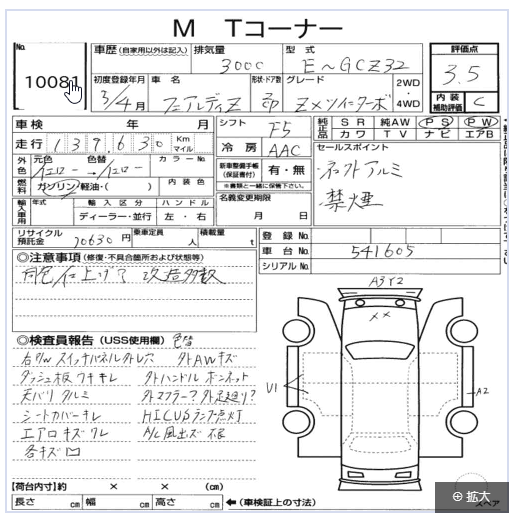 M Tコーナー
No.
10081
車歴(自家用以外は記入)
排気量
3000
型式
E~GCZ32
評価点
3.5
初度登録年月
3/4月
車名
フェアレディZ
形状・ドア数
グレード
Zメツイターボ
2WD
・
4WD
内装
補助評価
C
車検 年 月
走行 139,630 Km
マイル
シフト
F5
冷房
AAC
純正品
SR 純AW PS PW
カワ TV ナビ エアB
外色
元色
イエロー→イエロー
色替
カラーNo.
燃料
ガソリン・軽油・( )
内装色
新車整備手帳
(保証書付)
有・無
※書類と一緒に保管下さい。
セールスポイント
禁煙
輸入車用
年式
輸入区分
ハンドル
ディーラー・並行
左・右
名義変更期限
月 日
リサイクル
預託金
70630円
乗車定員
人
積載量
t
登録No.
車台No.
541605
シリアルNo.
◎注意事項(修復・不具合箇所および状態等)
同色仕上げ 改造多数
A3Y2
◎検査員報告(USS使用欄) 色替
右P/Wスイッチパネル外レ穴 外AWキズ
ダッシュ板ワキキレ 外ハンドル ボンネット
天バリタルミ 外マフラー? 外足廻り?
シートカバーキレ HICUSランプ点灯
エアロキズワレ A/C風出ズ 不良
各キズ凹
U1
A2
【荷台内寸】約 × × (cm)
長さ cm 幅 cm 高さ cm ←(車検証上の寸法)
スペア
拡大